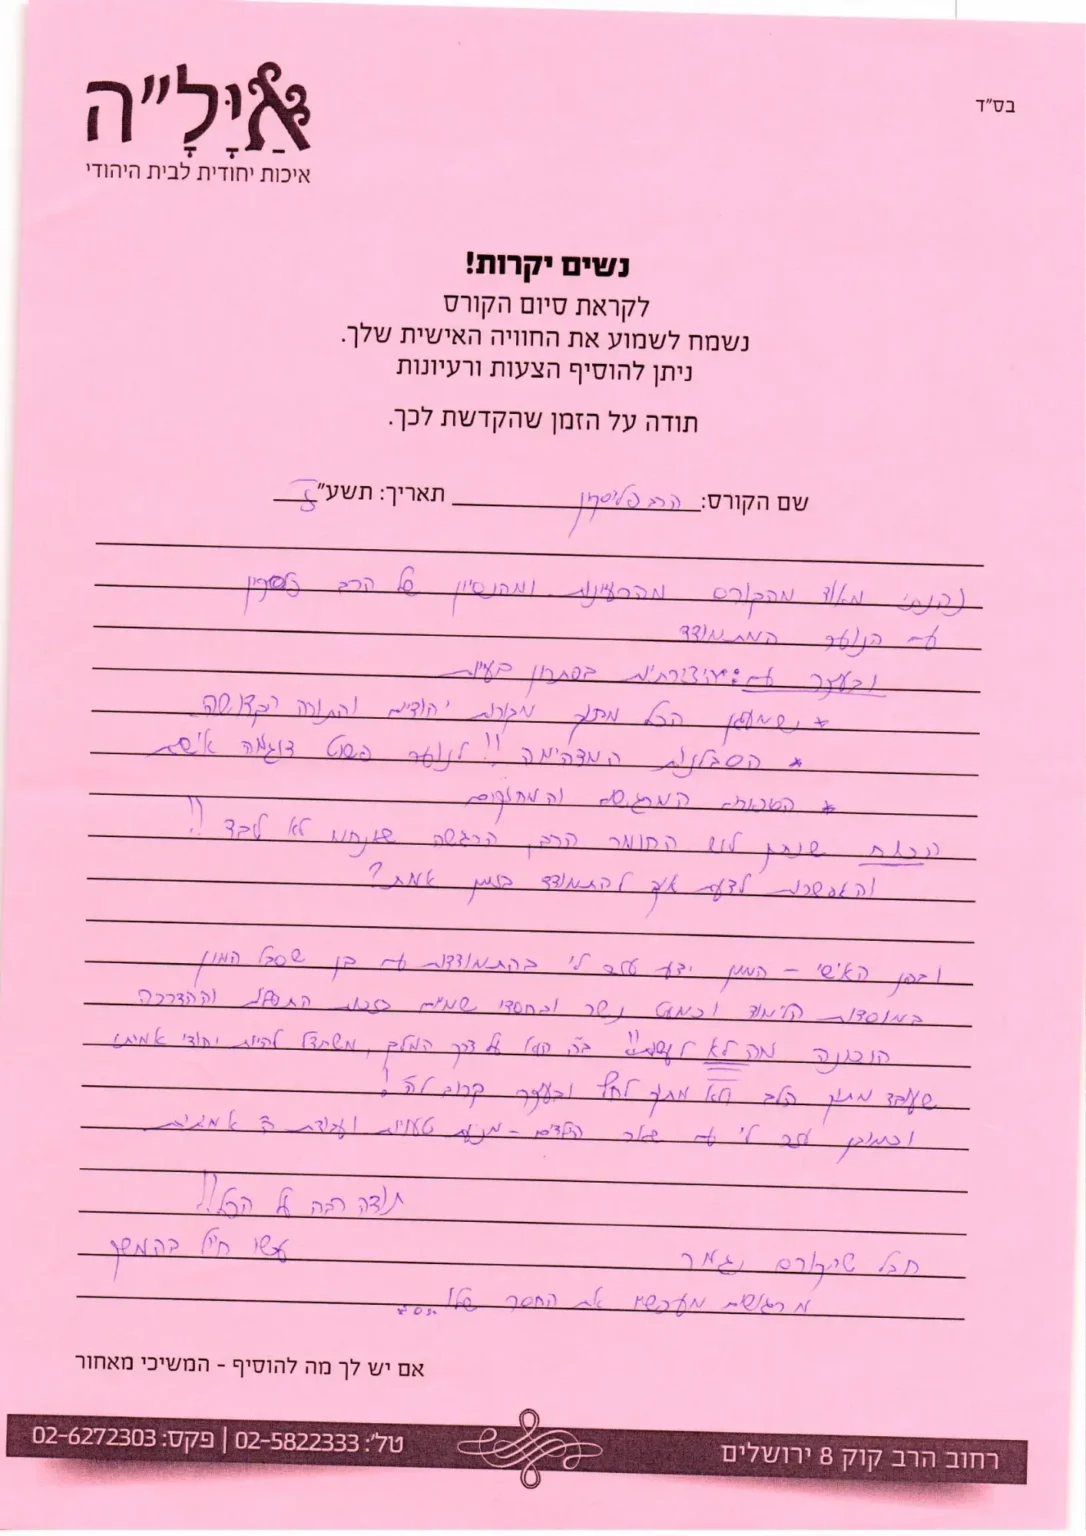 בס"ד
אַיָּלָ"ה
איכות יחודית לבית היהודי
נשים יקרות!
לקראת סיום הקורס
נשמח לשמוע את החוויה האישית שלך.
ניתן להוסיף הצעות ורעיונות
תודה על הזמן שהקדשת לכך.
שם הקורס: הרב פליסקין תאריך: תשע"
נהנתי מאוד מהקורס מהרעיונות ומהנסיון של הרב פליסקין
עם הנוער המתמודד
ובעיקר היצירתיות בפתרון בעיות
* ששמענו הכל מתוך מקורות יהודיים והתורה הקדושה
* הסבלנות המדהימה !! לנוער פשוט דוגמה אישית
* הסיפורים המרגשים והמחזקים
הכוח שנתן לנו החומר הרב, הרגשה שאנחנו לא לבד !!
והאפשרות לדעת איך להתמודד בזמן אמת?
ובפן האישי - המון ידע עזר לי בהתמודדות עם בן שסבל המון
במוסדות הלימוד וכמעט נשר ובחסדי שמים בזכות התפילות וההדרכה
הנכונה מה לא לעשות!! ב"ה הוא על דרך המלך, משתדל להיות יהודי אמיתי
שעובד מתוך הלב ולא מתוך לחץ ובעיקר קרוב לה' !
וכמובן עזר לי עם שאר הילדים - מניעת טעויות ועבודת ה' אמיתית
תודה רבה על הכל!!
חבל שהקורס נגמר
עשו חיל בהמשך
מרגישים מעכשיו את החסר שלו...
אם יש לך מה להוסיף - המשיכי מאחור
רחוב הרב קוק 8 ירושלים
טל': 02-5822333 | פקס: 02-6272303